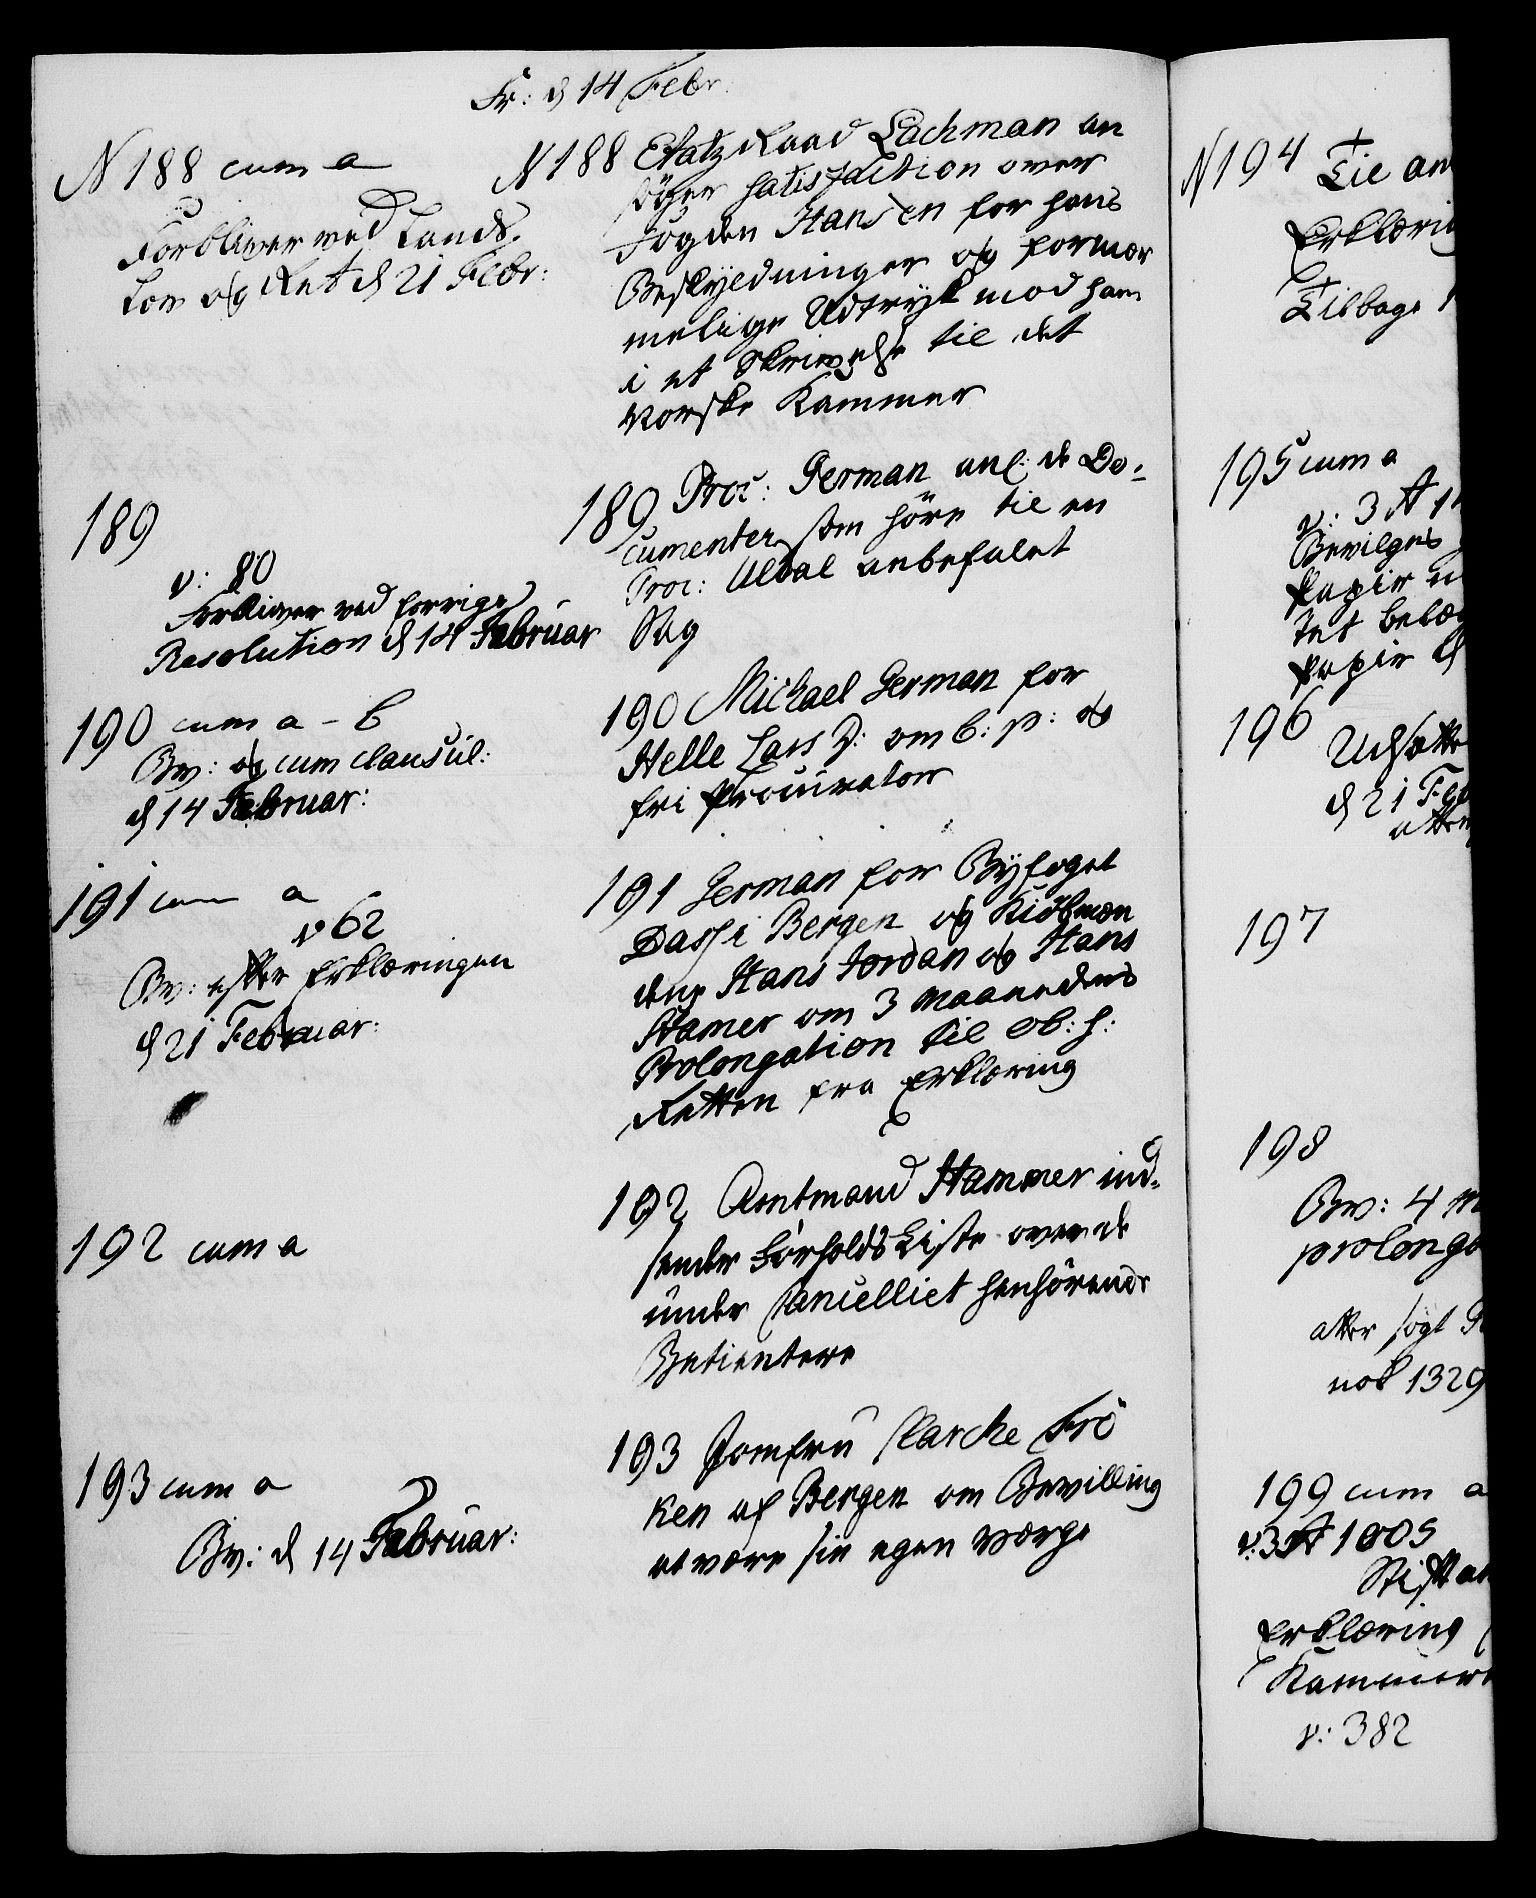 Fr: d 14 Febr.
N 188 cum a
Forbliver ved Lands
Lov og Ret d 21 Febr:
N 188 Etatz Raad Lachman an
søger satisfaction over
Fogden Hansen for hans
Beskyldninger og fornær
melige Udtryk mod ham
i et Skrivelse til det
Norske Kammer
189
v: 80
Forbliver ved forrige
Resolution d 14 Februar
189 Proc: German anl: de Do-
cumenter som høre til en
Proc: Uldal anbefalet
Sag
190 cum a - b
Bev: og cum clausul:
d 14 Februar:
190 Michael German for
Helle Lars D: om b: p: og
fri Procurator
191 cum a
v 62
Bev: efter Erklæringen
d 21 Februar:
191 German for Byfoget
Dass i Bergen og Kiöbmæn
dene Hans Jordan og Hans
Hamer om 3 Maaneders
Prolongation til Ob: H:
Retten fra Erklæring
192 cum a
192 Amtmand Hammer ind-
sender Forholds Liste over de
under Cancelliet henhørende
Betientere
193 cum a
Bev: d 14 Februar:
193 Jomfru Marche Frö
ken af Bergen om Bevilling
at være sin egen Værge
N 194
Til am
Erklærin
Tilbage
195 cum a
v: 3 A 1
Bevilges
Papir
tet belæg
Papir
196
Udsætte
d 21 Feb
atter
197
198
Bev: 4 M
prolonga
atter søgt
nok 1329
199 cum a
v: 3 A 1005
Stiftam
Erklæring
Kammer
v: 382